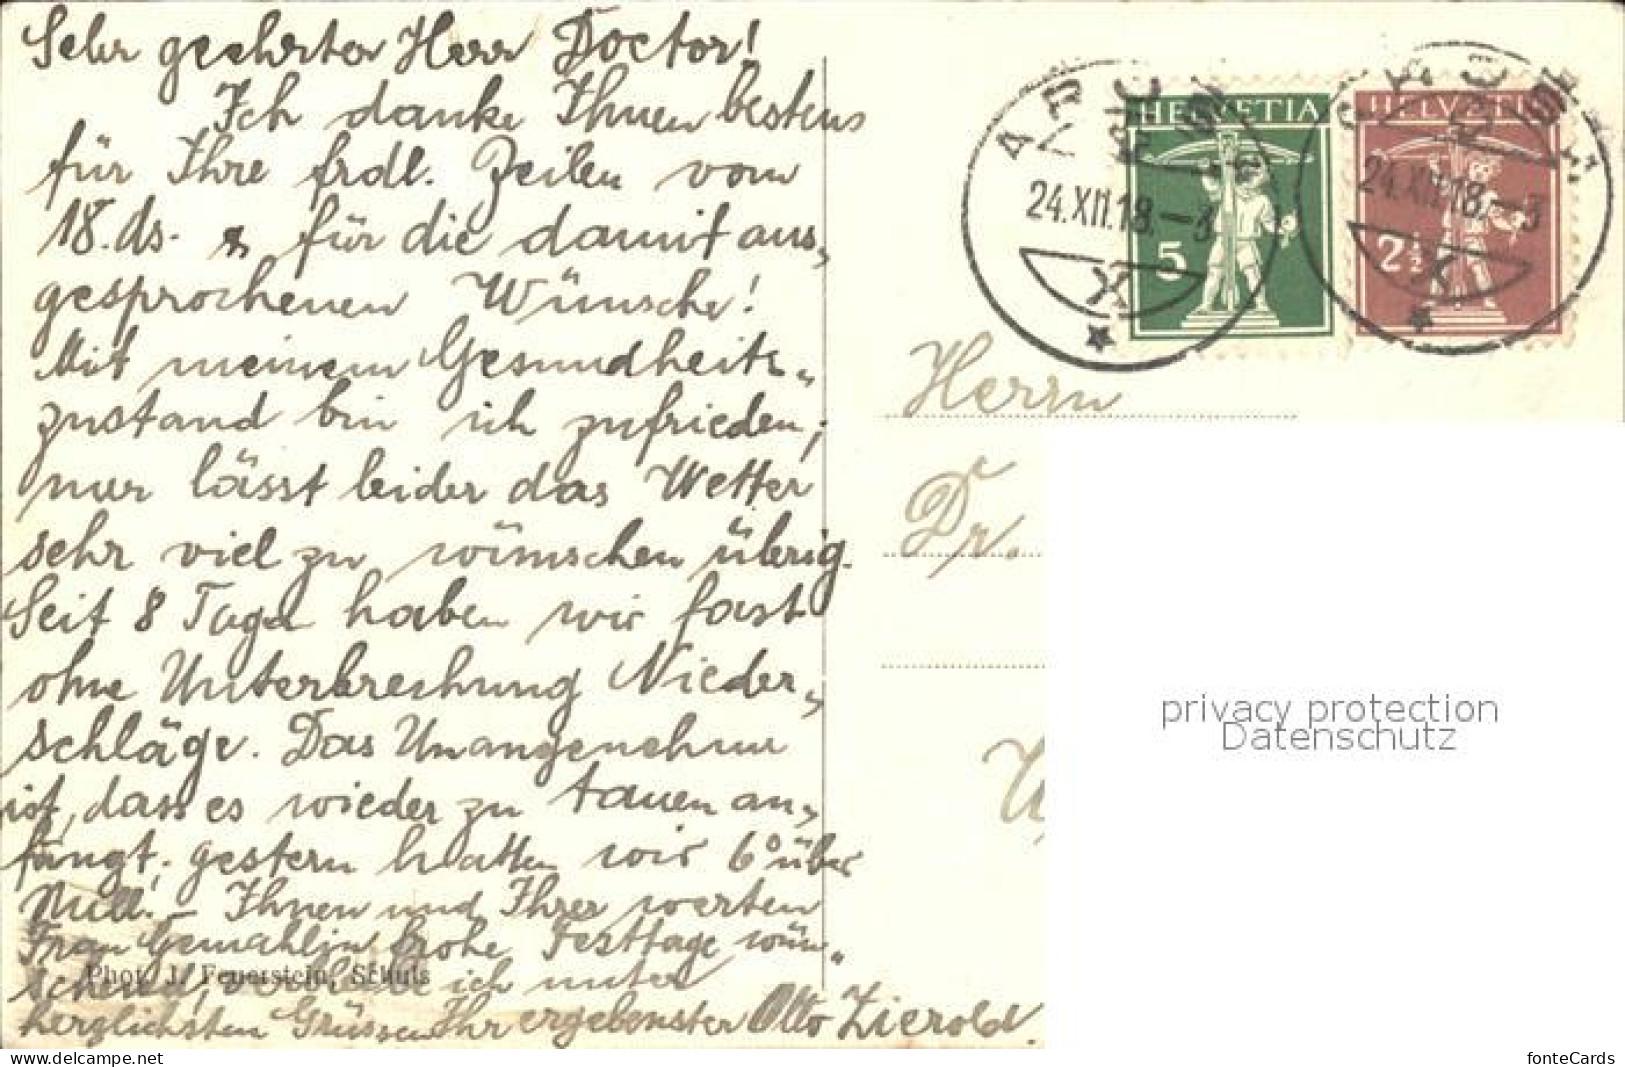 Sehr geehrter Herr Doctor!
Ich danke Ihnen bestens
für Ihre frdl. Zeilen vom
18. ds. & für die damit aus-
gesprochenen Wünsche!
Mit meinem Gesundheits-
zustand bin ich zufrieden;
nur lässt leider das Wetter
sehr viel zu wünschen übrig.
Seit 8 Tagen haben wir fast
ohne Unterbrechung Nieder-
schläge. Das Unangenehme
ist, dass es wieder zu tauen an-
fängt; gestern hatten wir 6° über
Null. – Ihnen und Ihrer werten
Frau Gemahlin frohe Festtage wün-
schend, verbleibe ich unter
herzlichsten Grüssen Ihr ergebenster Otto Zierold.
Phot. J. Feuerstein, Schuls
HELVETIA
5
HELVETIA
2½
AROSA
24.XII.18.–3
X
AROSA
24.XII.18.–3
X
Herrn
Dr.
privacy protection
Datenschutz
www.delcampe.net
fonteCards